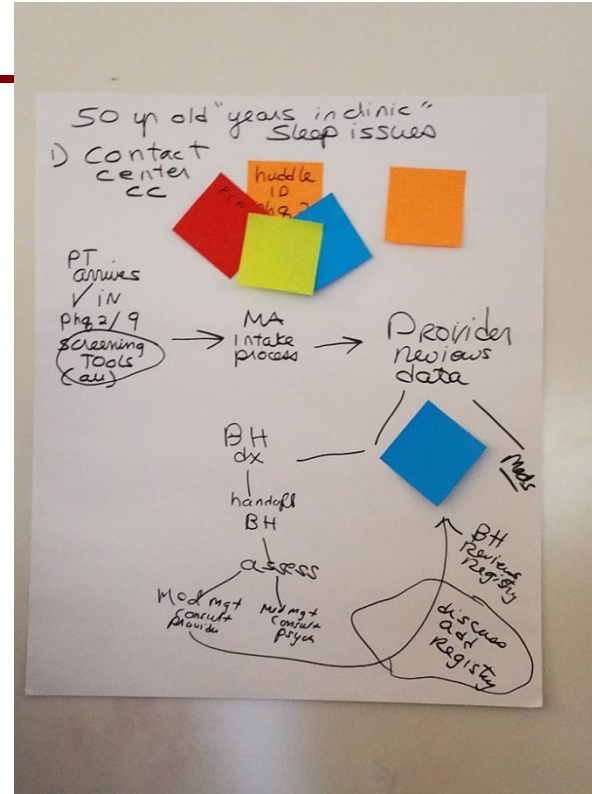 50 yr old "years in clinic"
Sleep issues
1) Contact
center
CC
huddle
ID
phq 2
PT
arrives
✓ IN
Phq 2/9
Screening
TOOLS
(all)
MA
Intake
process
Provider
reviews
data
BH
dx
Meds
handoff
BH
assess
Med mgt
consult
provider
Med mgt
consult
psych
BH
Reviews
Registry
discuss
add
Registry